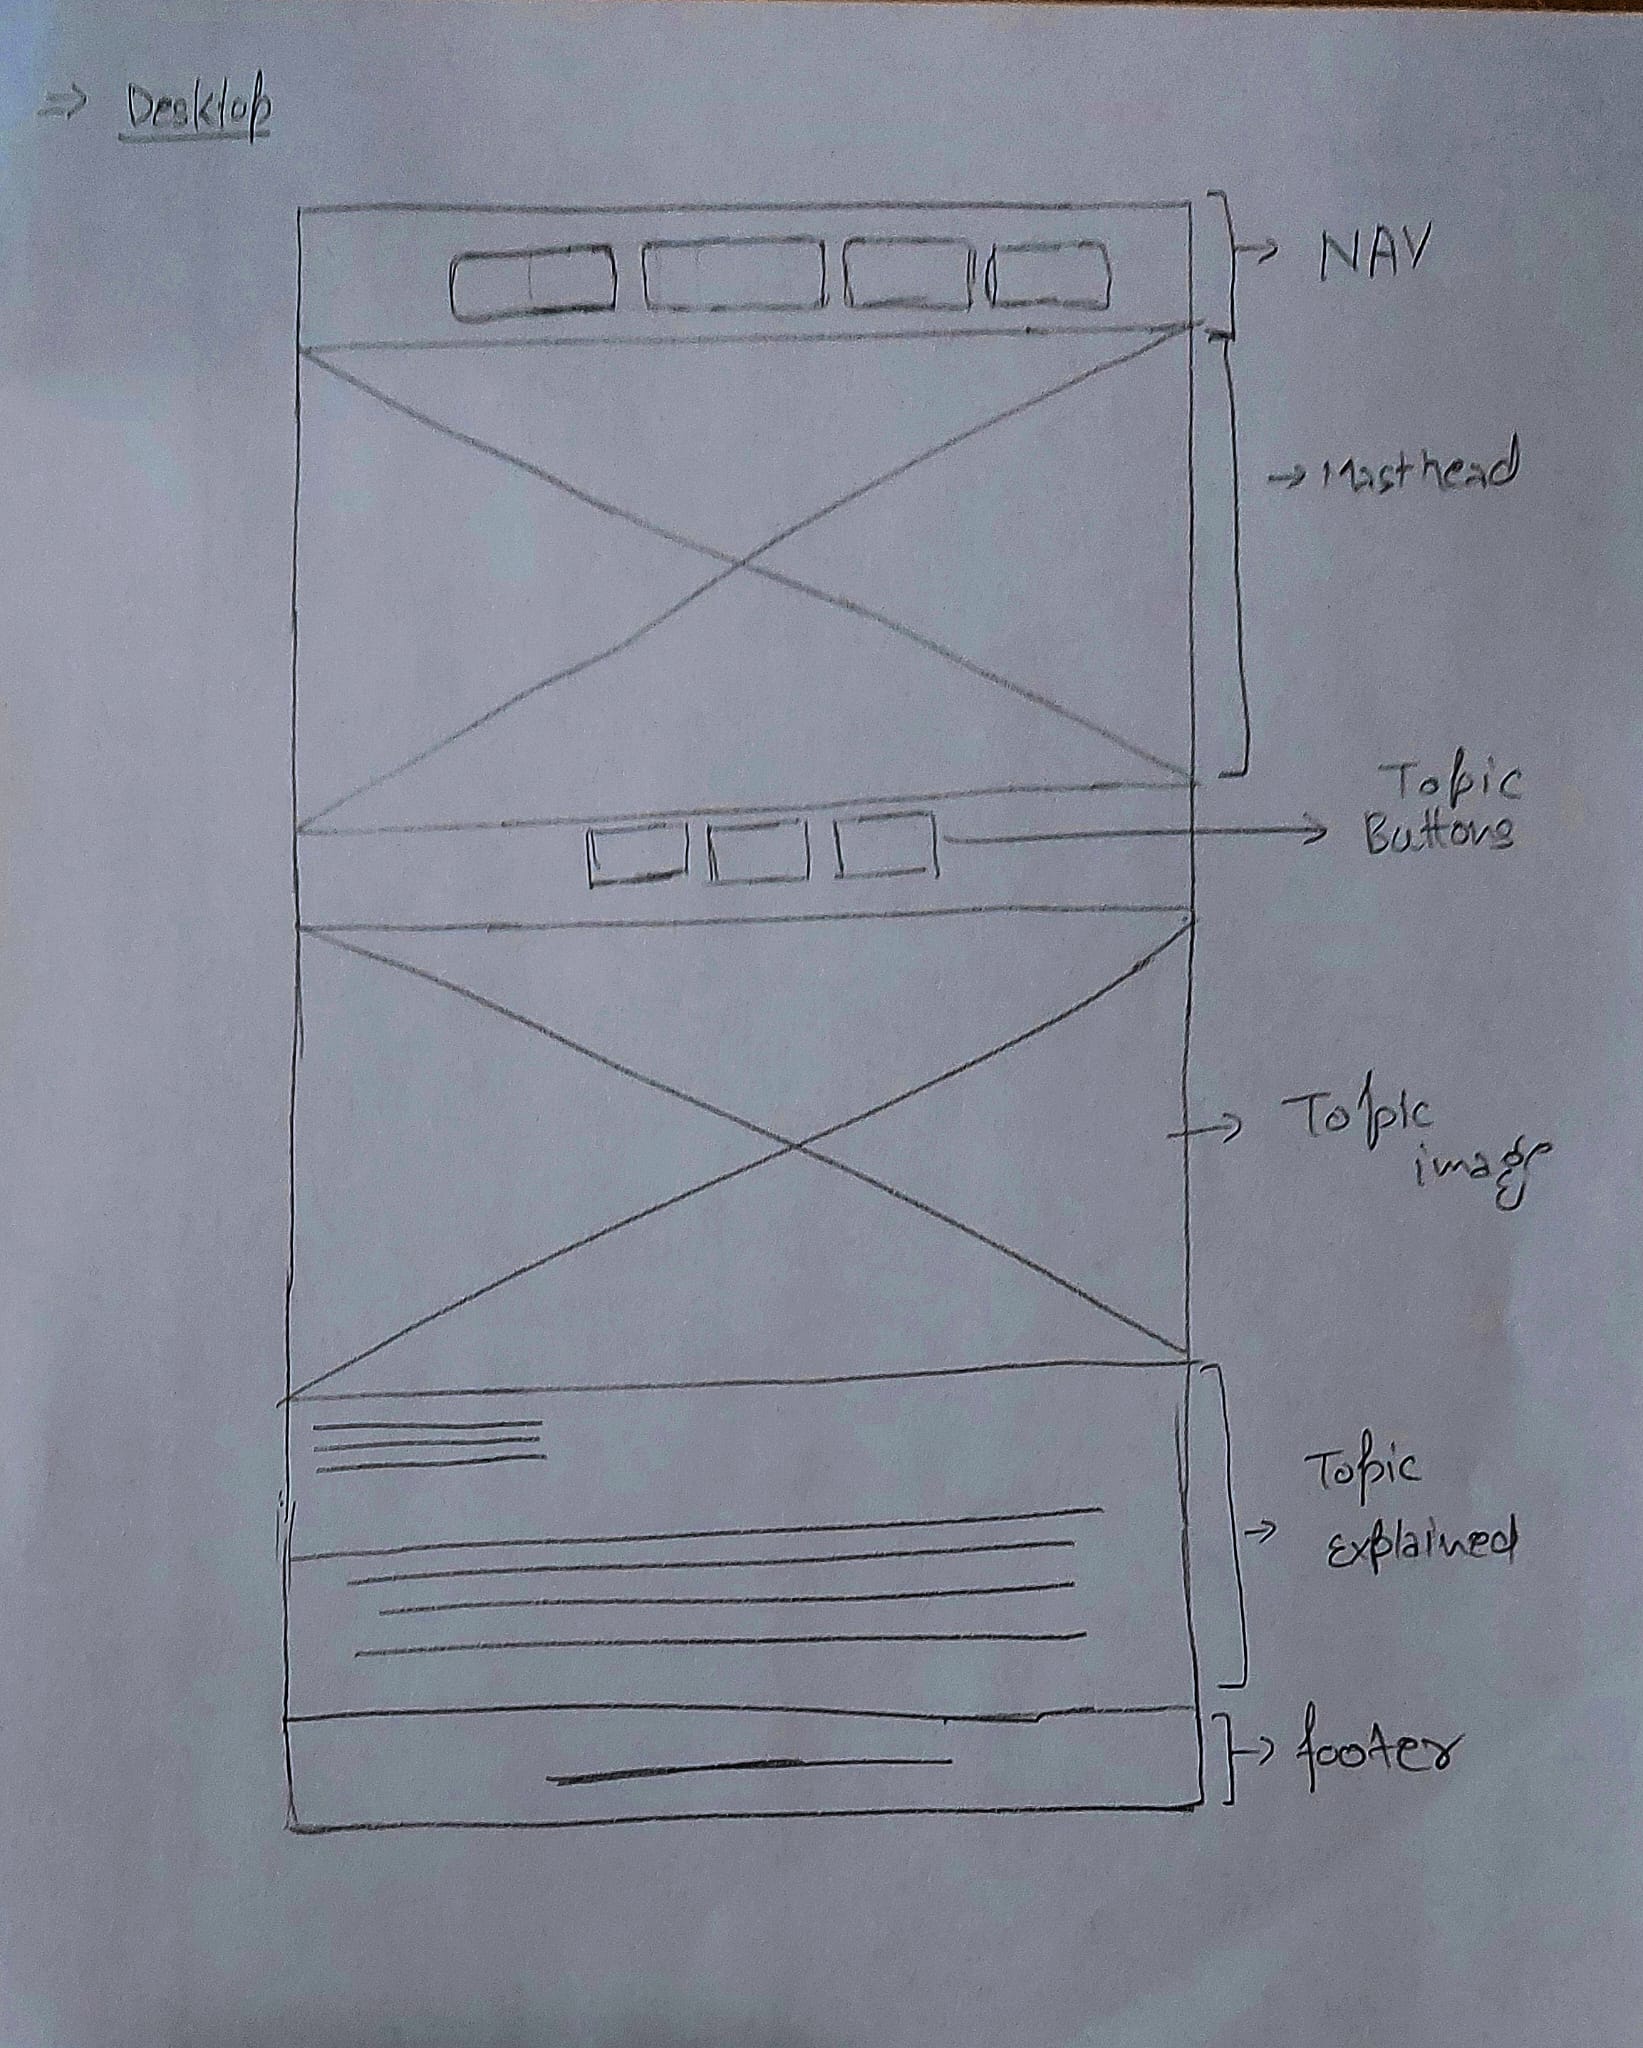 ⇒ Desktop
NAV
Masthead
Topic
Buttons
Topic
image
Topic
explained
footer